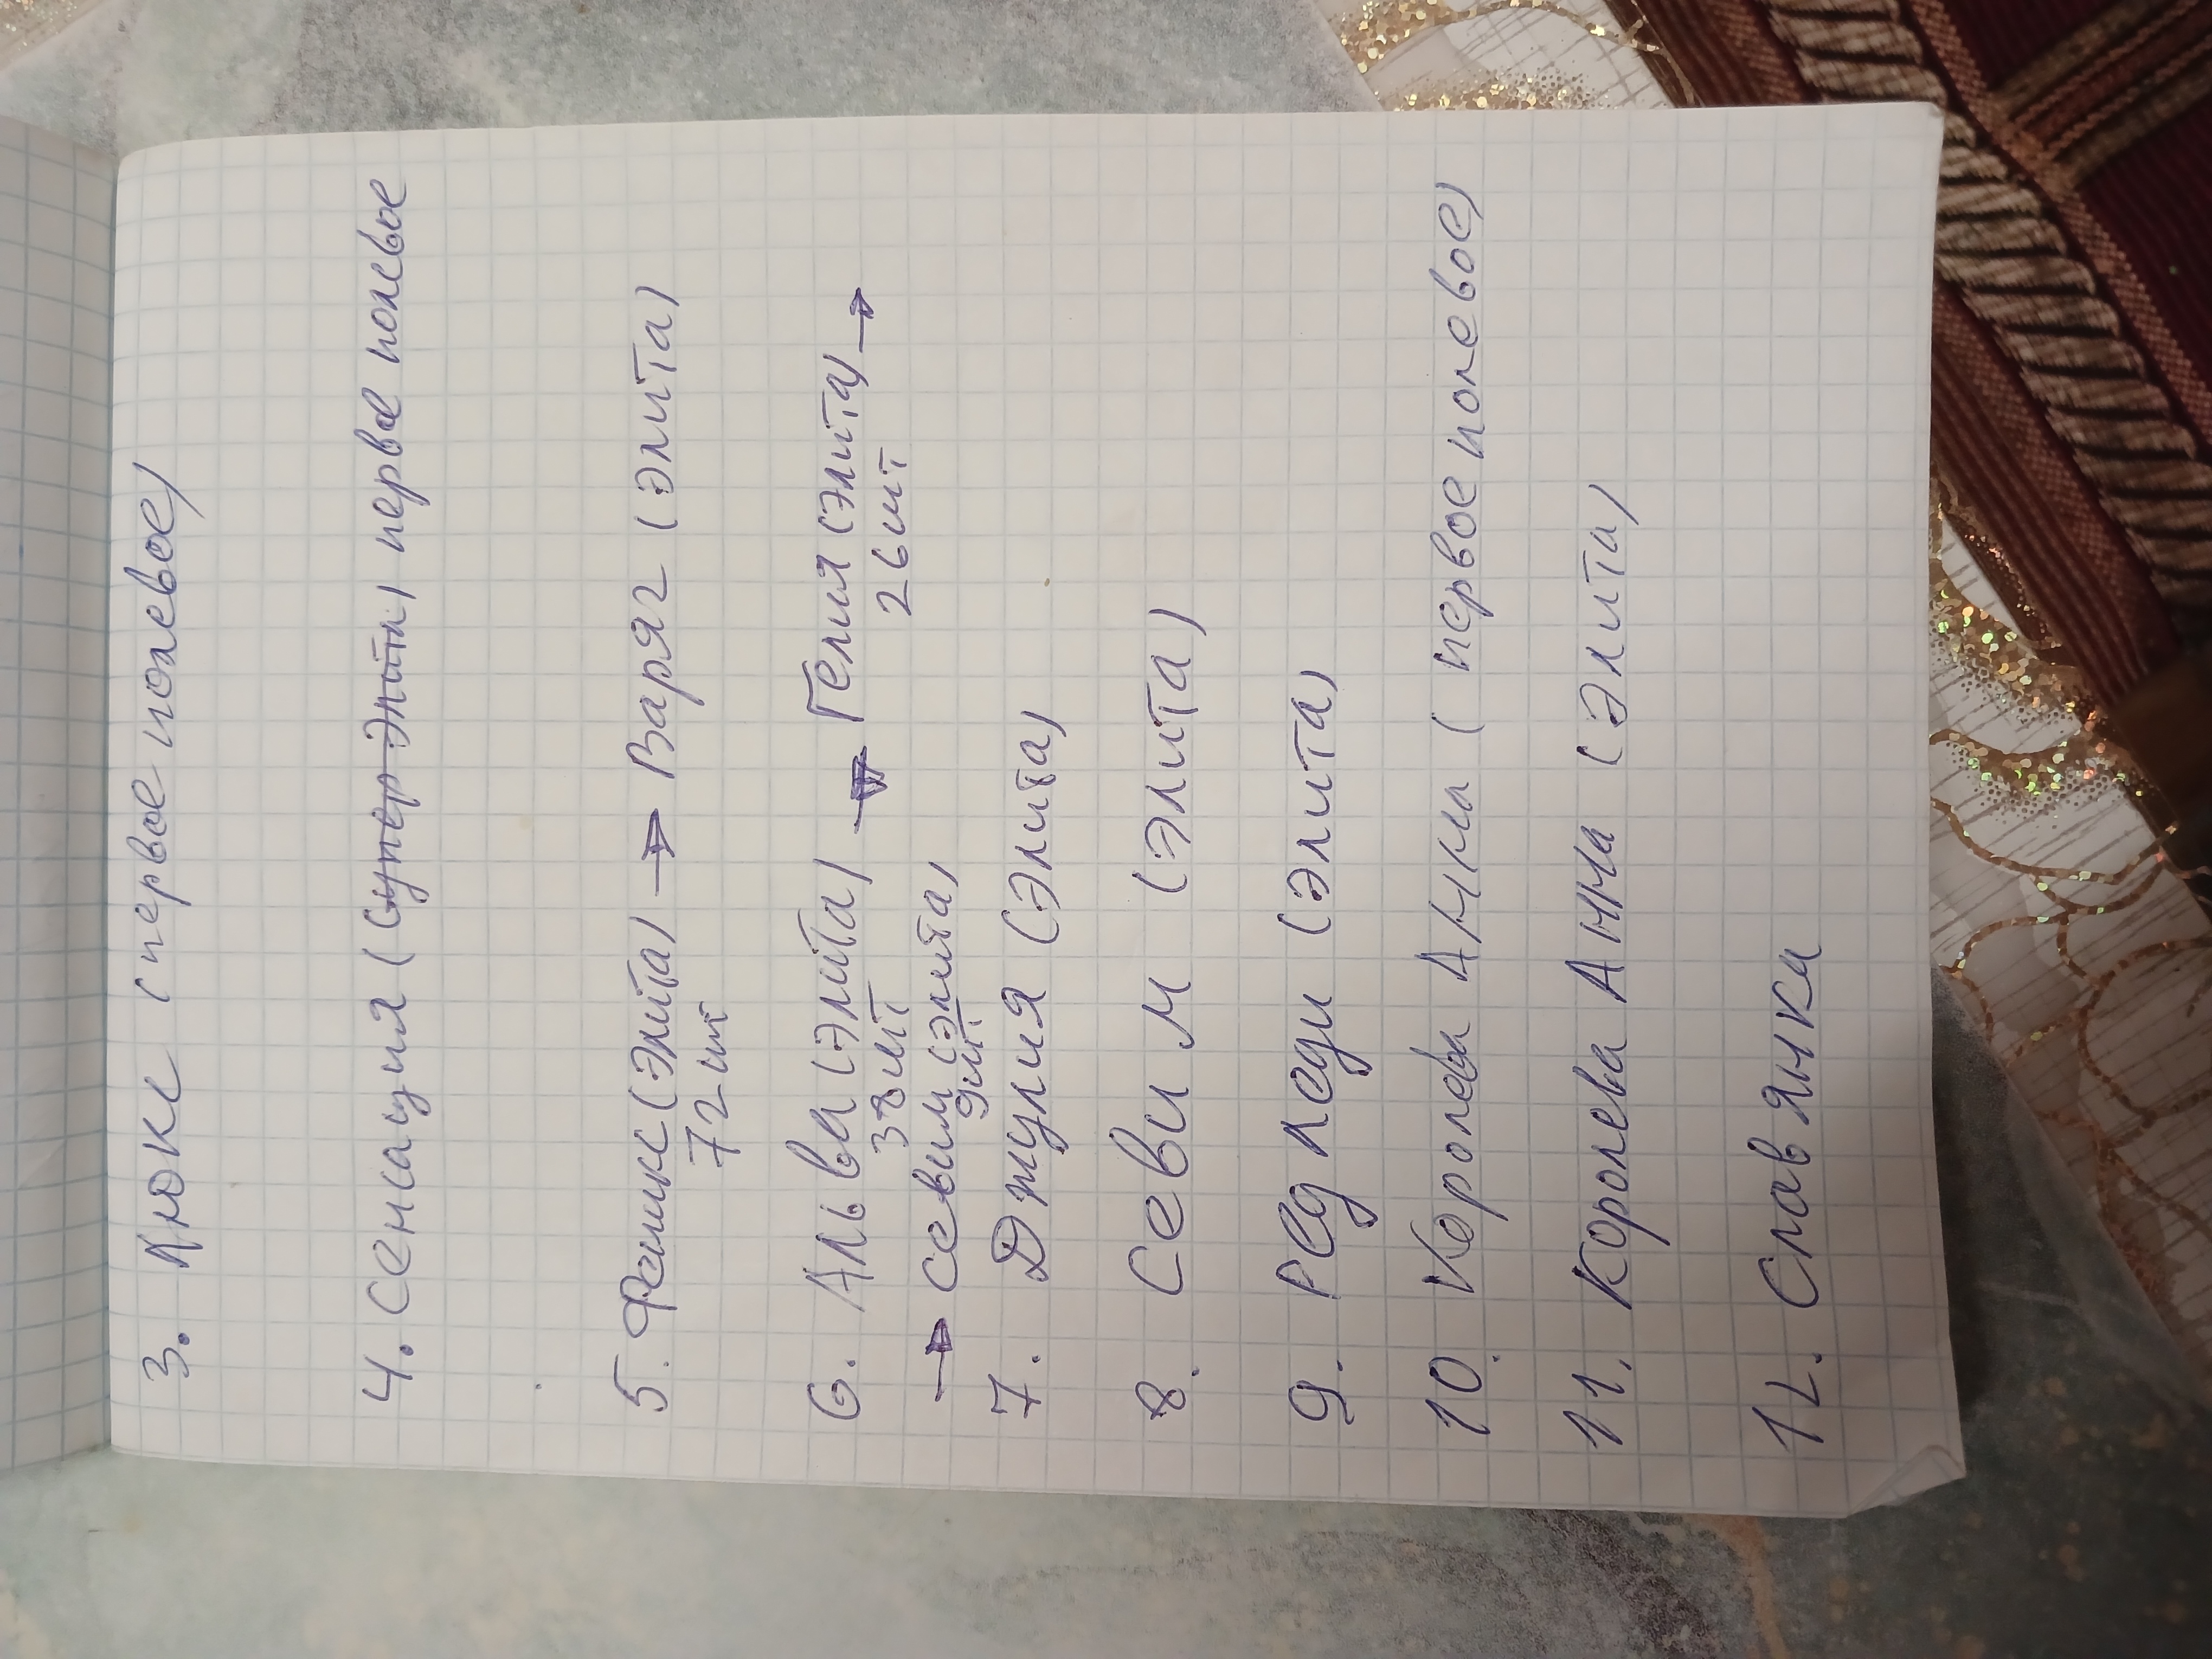 3. Люкс (первое полевое)
4. Сенсация (супер элита) первое польвое
5. Феникс (элита) → Варяг (элита)
72 шт
6. Альва (элита) → Гелия (элита) →
38 шт 26 шт
→ Севим (элита)
9 шт
7. Джулия (элита)
8. Севим (элита)
9. Ред леди (элита)
10. Королева Анна (первое полевое)
11. Королева Анна (элита)
12. Славянка